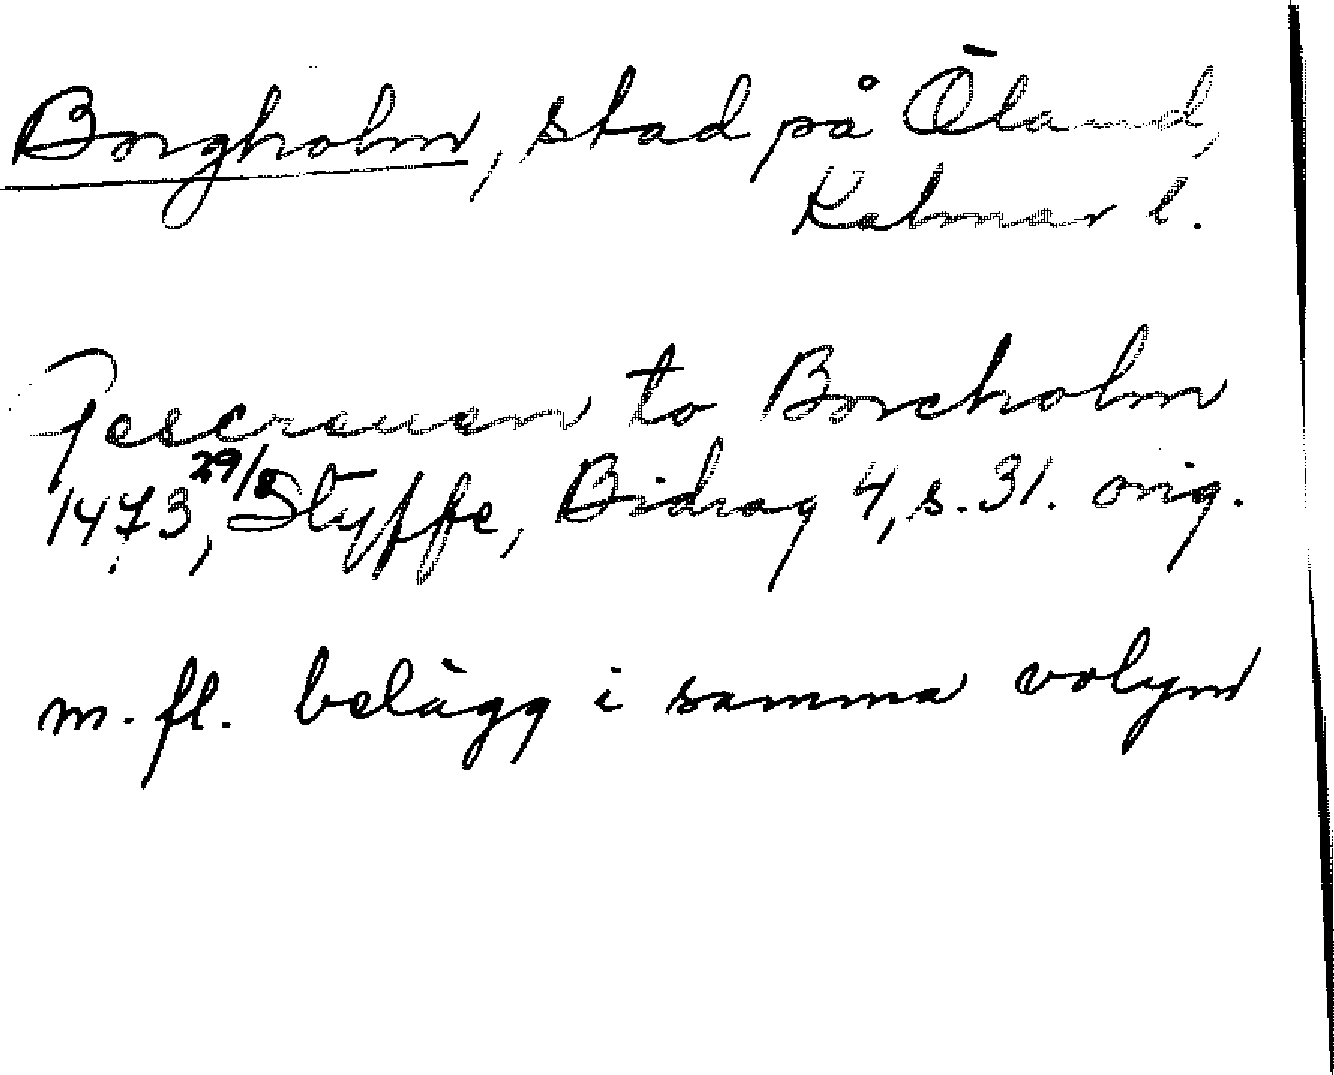 Borgholm, stad på Öland,
Kalmar l.
Gescreuen to Borcholm
1473 29/8, Styffe, Bidrag 4, s. 31. orig.
m. fl. belägg i samma volym